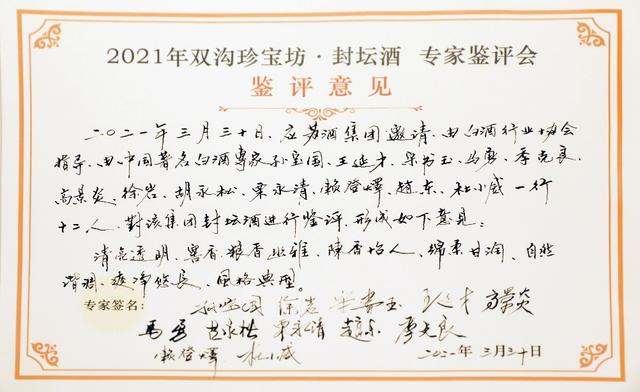 2021年双沟珍宝坊·封坛酒 专家鉴评会
鉴评意见
二〇二一年三月三十日，应苏酒集团邀请，由白酒行业协会
指导，由中国著名白酒專家孙宝国、王延才、宋书玉、马勇、季克良、
高景炎、徐岩、胡永松、栗永清、赖登燡、赵东、杜小威一行
十二人，對該集团封坛酒进行鉴评，形成如下意見：
清亮透明，窖香 幽雅，陳香怡人，绵柔甘润，自然
谐调，爽净悠長，風格典型。
专家签名：
孙宝国 徐岩 宋书玉 王延才 高景炎
马勇 栗永清 赵东 季克良
赖登燡 杜小威 二〇二一年三月三十日